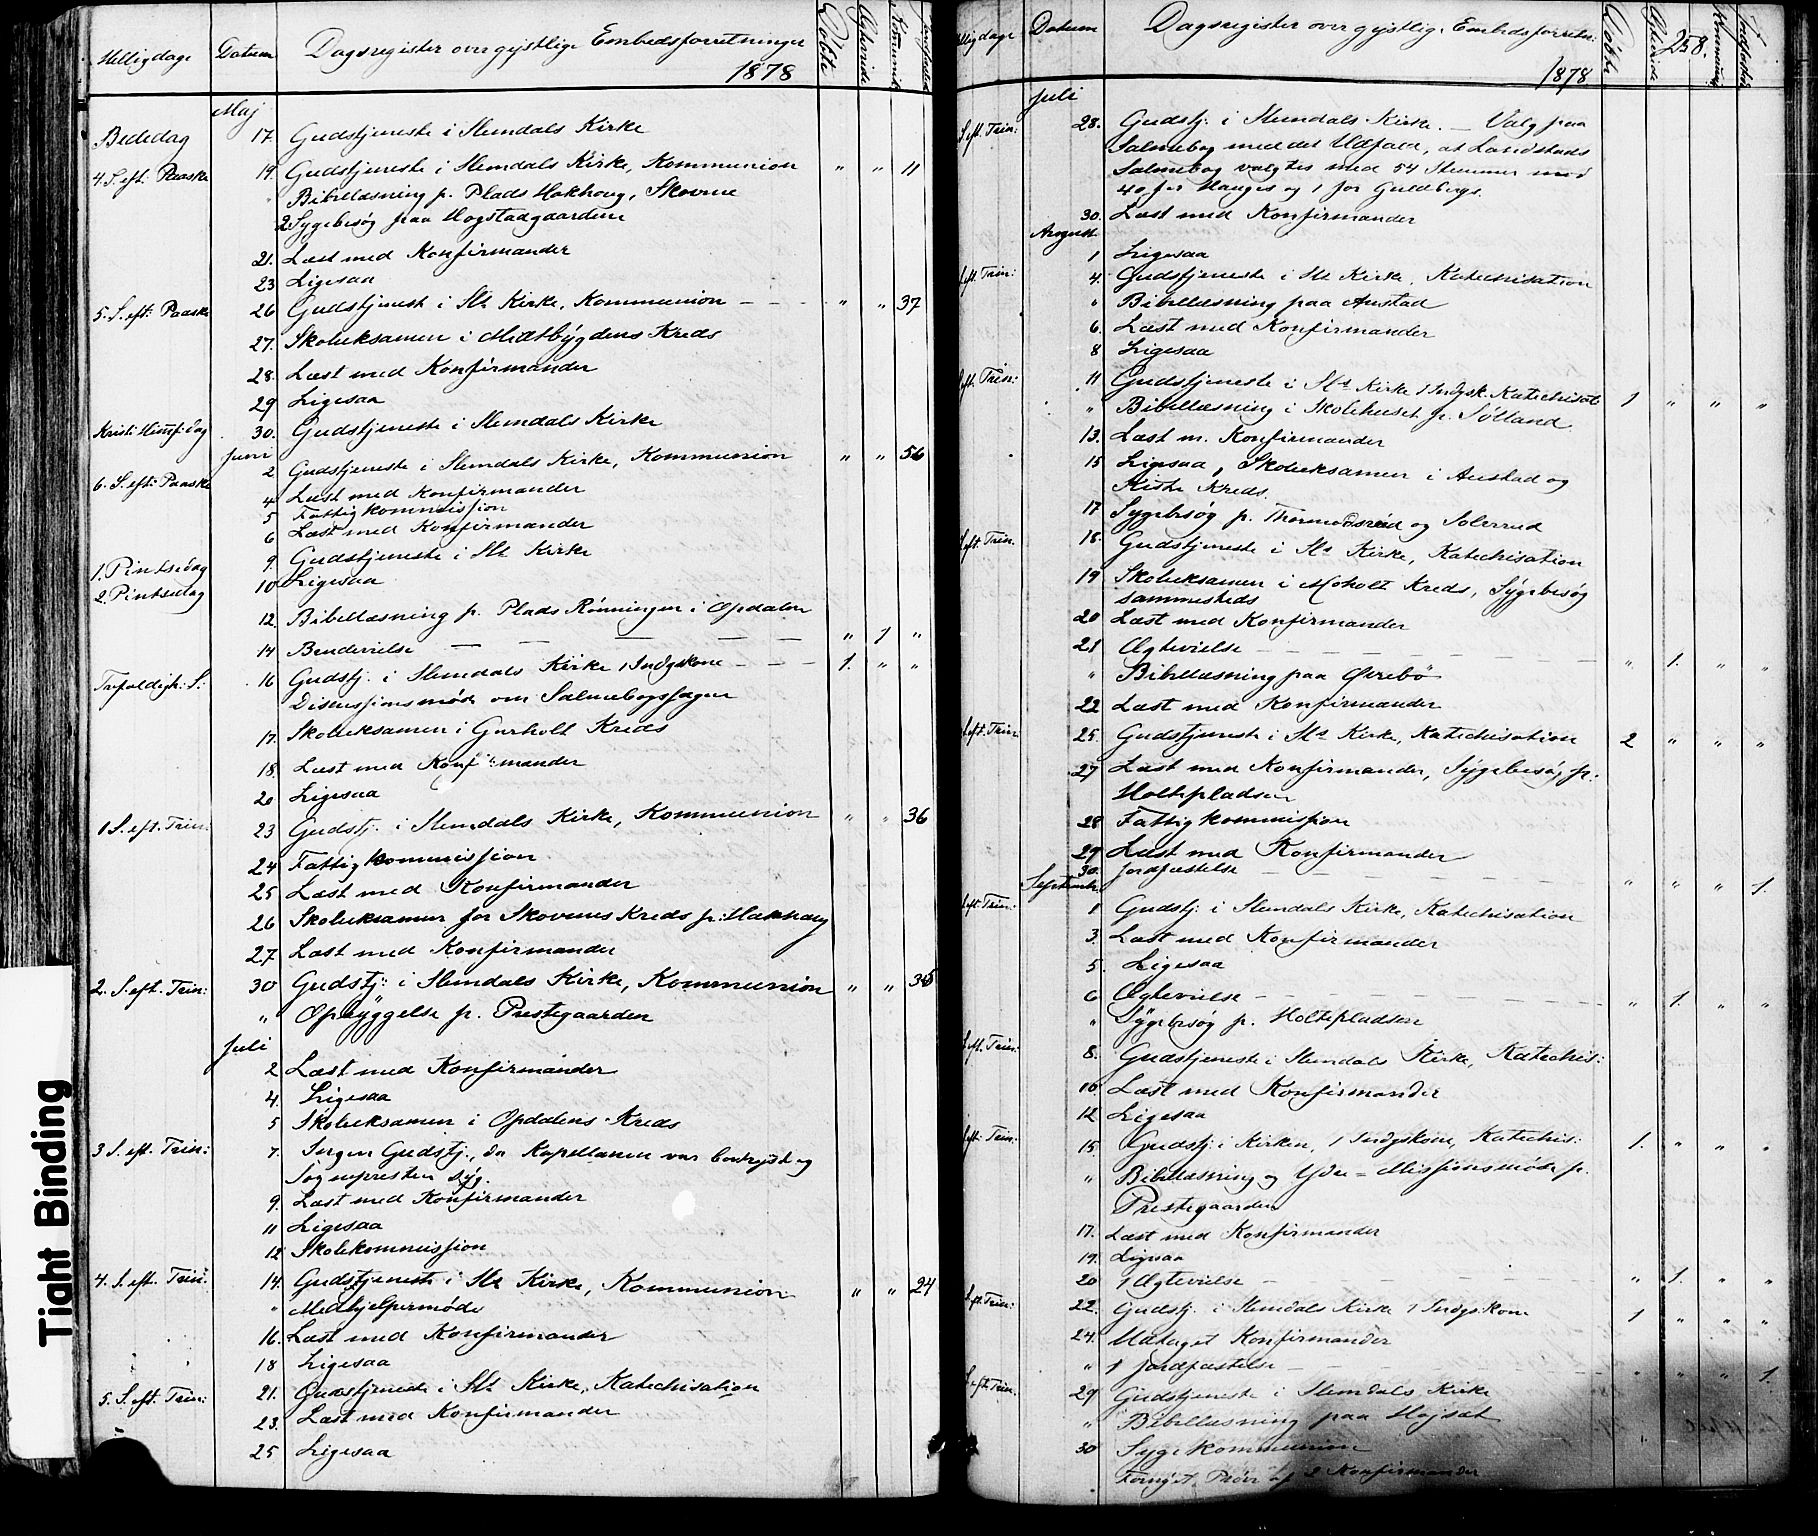 Helligdage Datum Dagsregister over gejstlige Embedsforretninger Döbte Ægteviede Kommunik. Jordfæstede
1878
Maj
Bededag 17. Gudstjeneste i Slemdals Kirke
4. S. eft. Paaske 19. Gudstjeneste i Slemdals Kirke, Kommunion " " 11
" Bibellæsning p. Plads Hakhaug, Skovene
2 Sygebesøg paa Hogstadgaardene
21. Læst med Konfirmander
23 Ligesaa
5. S. eft. Paaske 26 Gudstjenest i Sls Kirke, Kommunion - - - " " 37
27. Skoleeksamen i Midtbygdens Kreds
28. Læst med Konfirmander
29 Ligesaa
Kristi Himf: Dag 30. Gudstjeneste i Slemdals Kirke
Juni
6. S. eft: Paaske 2 Gudstjeneste i Slemdals Kirke, Kommunion " " 56
4 Læst med Konfirmander
5 Fattigkommission
6 Læst med Konfirmander
1. Pintsedag 9. Gudstjeneste i Sls Kirke
2. Pintsedag 10 Ligesaa
12. Bibellæsning p. Plads Rønningen i Opdalen
14 Brudevielse — — — — — " 1 "
Trefoldigh: S: 16 Gudstj. i Slemdals Kirke 1 Indgskone - - - 1. " "
Discussionsmøde om Salmebogssagen
17. Skoleeksamen i Gurholt Kreds
18. Læst med Konfirmander
20 Ligesaa
1 S. eft. Trin: 23 Gudstj. i Slemdals Kirke, Kommunion " " 36
24 Fattigkommission
25 Læst med Konfirmander
26 Skoleeksamen for Skovenes Kreds p: Hakhaug
27. Læst med Konfirmander
2. S. eft. Trin: 30 Gudstj: i Slemdals Kirke, Kommunion " "
" Opbyggelse p. Prestegaarden
Juli
2 Læst med Konfirmander
4. Ligesaa
5 Skoleeksamen i Opdalens Kreds
3 S. eft. Trin: 7. Ingen Gudstj., da Kapellanen var bortrejst og
Sognepresten syg.
9. Læst med Konfirmander
11 Ligesaa
12 Skolekommission
4. S. eft. Trin. 14. Gudstjeneste i Sls Kirke, Kommunion " " 24
" Medhjelpermøde
16. Læst med Konfirmander
18 Ligesaa
5. S. eft. Trin: 21. Gudstjeneste i Sls Kirke, Katechisation
23. Læst med Konfirmander
25 Ligesaa
Tight Binding
Helligdage Datum Dagsregister over gejstlig. Embedsforretn: Döbte Ægteviede 258. Kommunik. Jordfæstede
1878.
Juli
S. eft. Trin: 28. Gudstj. i Slemdals Kirke. — Valg paa
Salmebog med det Udfald, at Landstads
Salmebog valgtes med 54 Stemmer mod
40 for Hauges og 1 for Guldbergs.
30. Læst med Konfirmander
August.
1 Ligesaa
S. eft. Trin: 4. Gudstjeneste i Sls Kirke, Katechisation
" Bibellæsning paa Austad
6. Læst med Konfirmander
8 Ligesaa
S. eft. Trin: 11 Gudstjeneste i Sls Kirke 1 Indgsk. Katechisat 1 " " "
" Bibellæsning i Skolehuset p. Sölland
13. Læst m. Konfirmander
15 Ligesaa, Skoleeksamen i Austad og
Kiste Kreds.
17 Sygebesøg p. Thormodsrød og Solerud
S. eft. Trin. 18. Gudstjeneste i Sls Kirke, Katechisation
19 Skoleeksamen i Moholt Kreds, Sygebesøg
sammesteds
20 Læst med Konfirmander
21 Ægtevielse — — — — " 1. " "
" Bibellæsning paa Øvrebö
22 Læst med Konfirmander
S. eft. Trin: 25. Gudstjeneste i Sls Kirke, Katechisation 2 " " "
27 Læst med Konfirmander, Sygebesøg p.
Holtepladsen
28 Fattigkommission
29 Læst med Konfirmander
30. Jordfæstelse — — — — " " " 1.
Septemb.
S. eft. Trin: 1 Gudstj. i Slemdals Kirke, Katechisation
3. Læst med Konfirmander
5. Ligesaa
6 Ægtevielse — — — — " 1. " "
" Sygebesøg p. Holtepladsen
S. eft. Trin: 8. Gudstjeneste i Slemdals Kirke, Katechis:
10. Læst med Konfirmander
12 Ligesaa
S. eft. Trin: 15. Gudstj. i Kirken, 1 Indgskone, Katechis: 1. " " "
" Bibellæsning og Ydre-Missionsmøde p.
Prestegaarden
17. Læst med Konfirmander
19. Ligesaa
20 1 Ægtevielse — — — " 1. " "
S. eft. Trin: 22. Gudstj. i Slemdals Kirke 1 Indgskone 1 " " "
24. Udtaget Konfirmander
" 1 Jordfæstelse — — — " " " 1.
S. eft. Trin. 29 Gudstjeneste i Slemdals Kirke
" Bibellæsning paa Højsæt
30 Sygekommunion
Fornyet Prøve af 2 Konfirmander